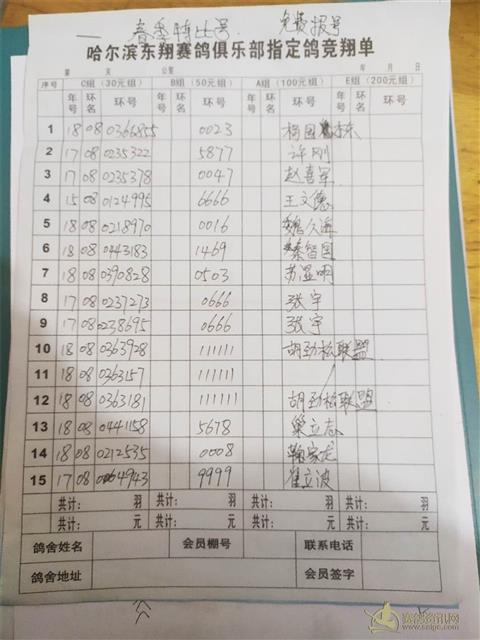 春季特比号 免费报号
哈尔滨东翔赛鸽俱乐部指定鸽竞翔单
第 关 公里 年 月 日
序号 C组(30元组) B组(50元组) A组(100元组) E组(200元组)
年号 环名 环号 年号 环名 环号 年号 环名 环号 年号 环名 环号
1 18 08 0366855 0023
2 17 08 0235322 5877 许刚
3 17 08 0235378 0047 赵喜军
4 15 08 0124995 6666 王文德
5 18 08 0218970 0016 魏久海
6 18 08 0443183 1469 秦智国
7 18 08 0390828 0503 苏显明
8 17 08 0237273 0666 张宇
9 17 08 0238695 0666 张宇
10 18 08 0363928 111111 胡劲松联盟
11 18 08 0363157 111111
12 18 08 0363181 111111 胡劲松联盟
13 18 08 0441158 5678 巢立志
14 18 08 0212535 0008 鞠家龙
15 17 08 0064943 9999 崔立波
共计: 羽 共计: 羽 共计: 羽 共计: 羽
共计: 元 共计: 元 共计: 元 共计: 元
鸽舍姓名 会员棚号 联系电话
鸽舍地址 会员签字
赛鸽资讯网
www.saige.com